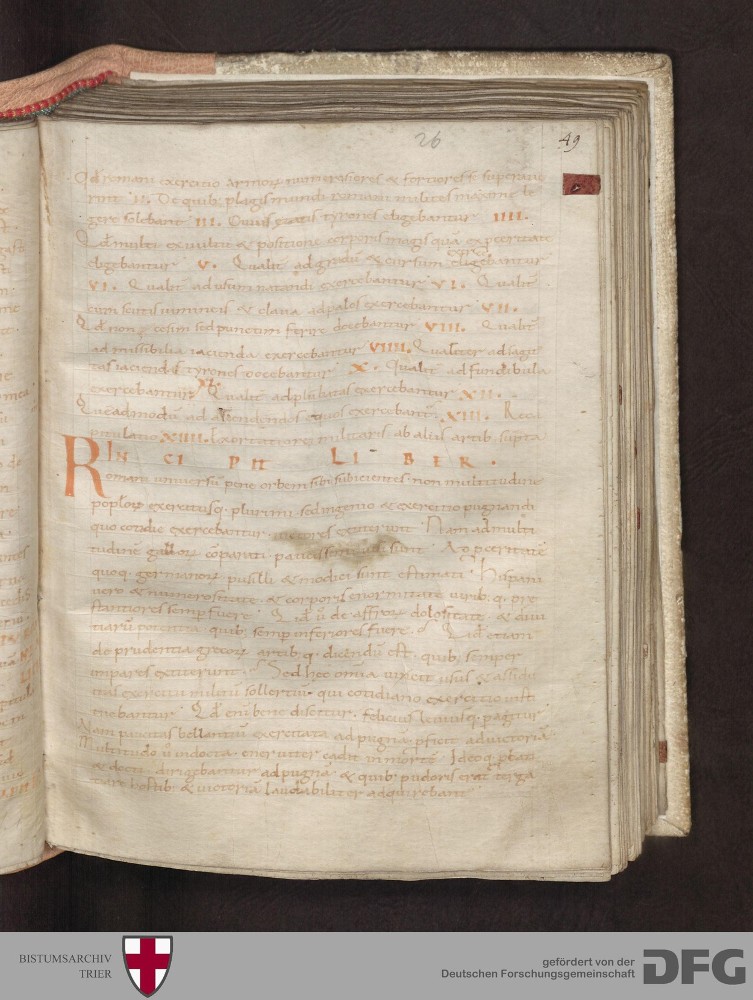 26
49
Qd romani exercitio armorum numerosiores & fortiores s superave
rint II. De quib; plagis mundi romani milites maxime le
gere solebant III. Cuius etatis tyrones eligebantur IIII.
Qd multi ex vultu & positione corporis magis quā ex proceritate
eligebantur V. Qualit ad gradū & cursum exerce
eligebantur
VI. Qualit ad usum natandi exercebantur VI. Qualit
cum scutis vimineis & clava ad palos exercebantur VII.
Qd non cesim sed punctim ferire docebantur VIII. Qualit
ad missibilia iacienda exercebantur VIIII. Qualiter ad sagit
tas iaciendas tyrones docebantur X. Qualit ad fundibula
exercebantur XI. Qualit ad plubatas exercebantur XII.
Quēadmodū ad ascendendos equos exercebant XIII. Reca
pitulatio XIIII. Exortatio rei militaris ab aliis artib; supta
INCIPIT LIBER.
Romani universū pene orbem sibi subicientes. non multitudine
populorum exercitusq; plurimi. sed ingenio & exercitio pugnandi
quo cotidie exercebantur. victores extiterunt. Nam ad multi
tudinē gallorum cōparati. paucissimi visi sunt. A proceritate
quoq; germanorum pusilli & modici sunt estimati. Hispani
vero & numerositate & corporis enormitate virib; q; pre
stantiores semp fuere. Qid ū de affrorum dolositate & divi
tiarū potentia. quib; semp inferiores fuere. Qid etiam
de prudentia grecorum artib; q; dicendū est. quib; semper
impares extiterunt. Sed hec omīa vincit usus & assidu
itas exercitii militū sollertiū. qui cotidiano exercitio insti
tuebantur. Qd enī bene discitur. felicius
Nam paucitas bellantiū exercitata ad pugnā pficit ad victoriā.
Multitudo ū indocta. enerviter cadit in mortē. Ideoq; pbati
& docti dirigebantur ad pugnā. & quib; pudoris erat terga
dare hostib; & victoriā laudabiliter adquirebant.
BISTUMSARCHIV
TRIER
gefördert von der
Deutschen Forschungsgemeinschaft
DFG